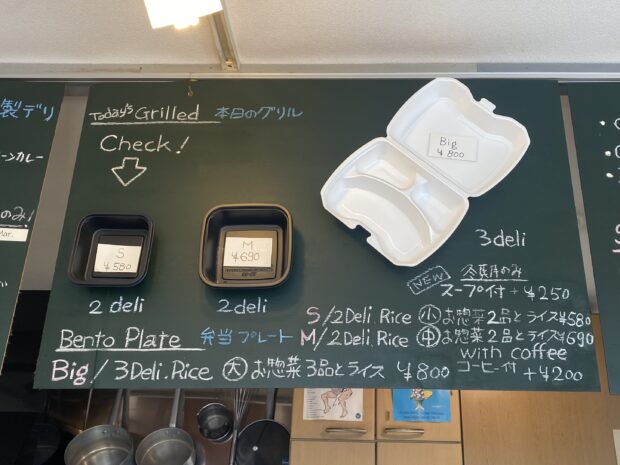 製デリ
ーンカレー
のみ!
Mar.
Today's Grilled 本日のグリル
Check!
S
¥580
2 deli
M
¥690
2 deli
Big
¥800
3deli
NEW
スープ付 +¥250
S/2Deli.Rice 小 お惣菜2品とライス¥580
Bento Plate 弁当プレート M/2Deli.Rice 中 お惣菜2品とライス¥690
with coffee
Big/3Deli.Rice 大 お惣菜3品とライス ¥800
コーヒー付 +¥200